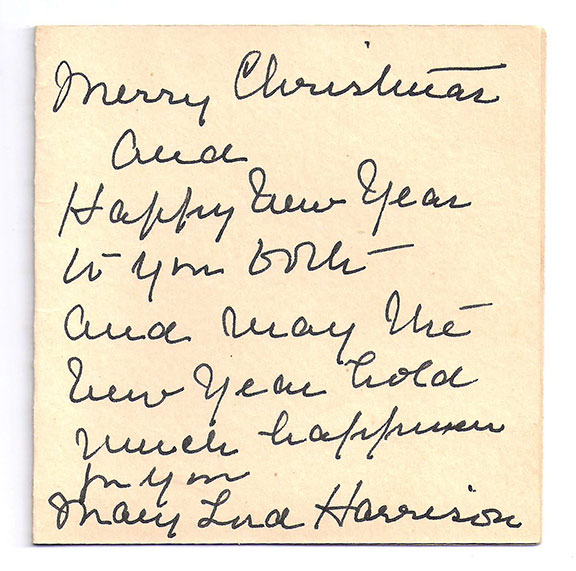 Merry Christmas
and
Happy New Year
to you both
and may the
New Year hold
much happiness
for you
Mary Lord Harrison